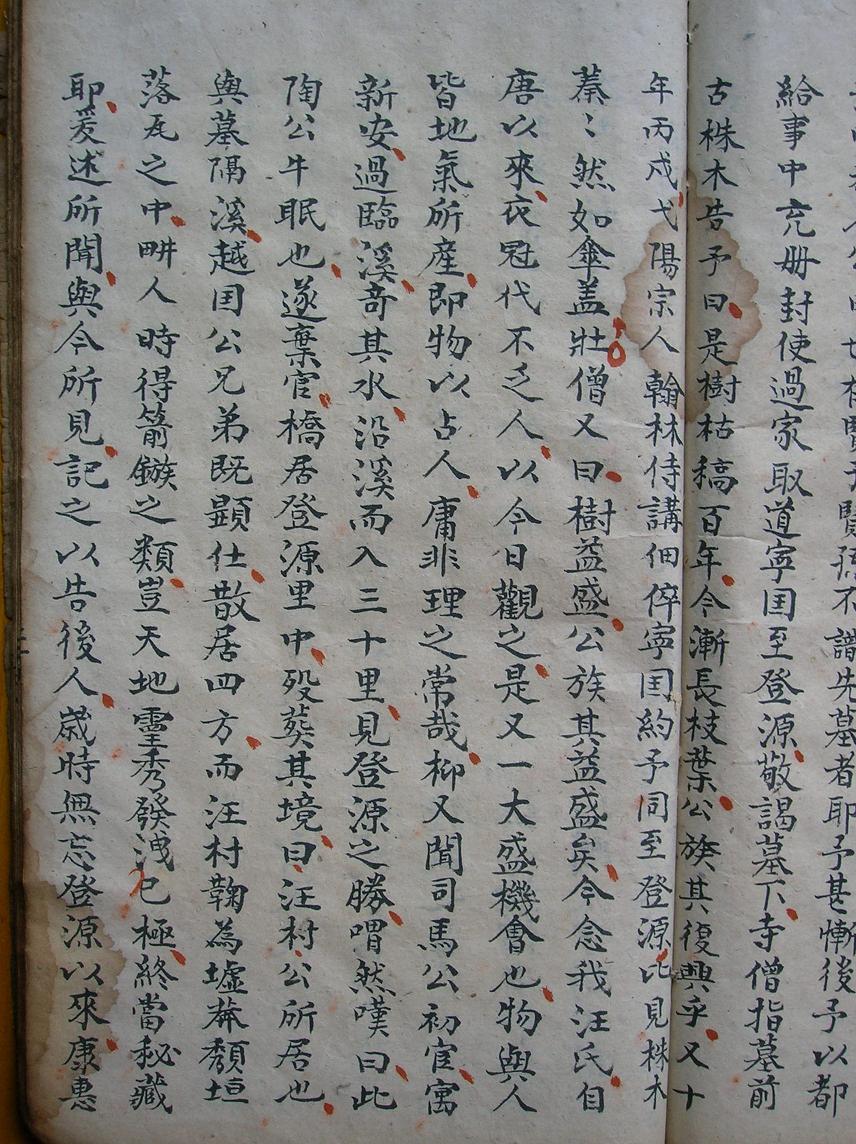 公族賢子賢孫不譜先墓者耶予甚慚後予以都
給事中充册封使過家取道寕囯至登源敬謁墓下寺僧指墓前
古株木告予曰是樹枯稿百年今漸長枝葉公族其復興乎又十
年丙戌弋陽宗人翰林侍講佃倅寕囯約予同至登源比見株木
蓁〻然如傘盖壯僧又曰樹益盛公族其益盛矣今念我汪氏自
唐以來衣冠代不乏人以今日觀之是又一大盛機會也物與人
皆地氣所産即物以占人庸非理之常哉柳又聞司馬公初宦寓
新安過臨溪竒其水沿溪而入三十里見登源之勝喟然嘆曰此
陶公牛眠也遂棄官橋居登源里中殁葬其境曰汪村公所居也
與墓隔溪越囯公兄弟既顕仕散居四方而汪村鞠為墟莽頽垣
落瓦之中畊人時得箭鏃之類豈天地霊秀發洩已極終當秘藏
耶爰述所聞與今所見記之以告後人歳時無忘登源以來康惠